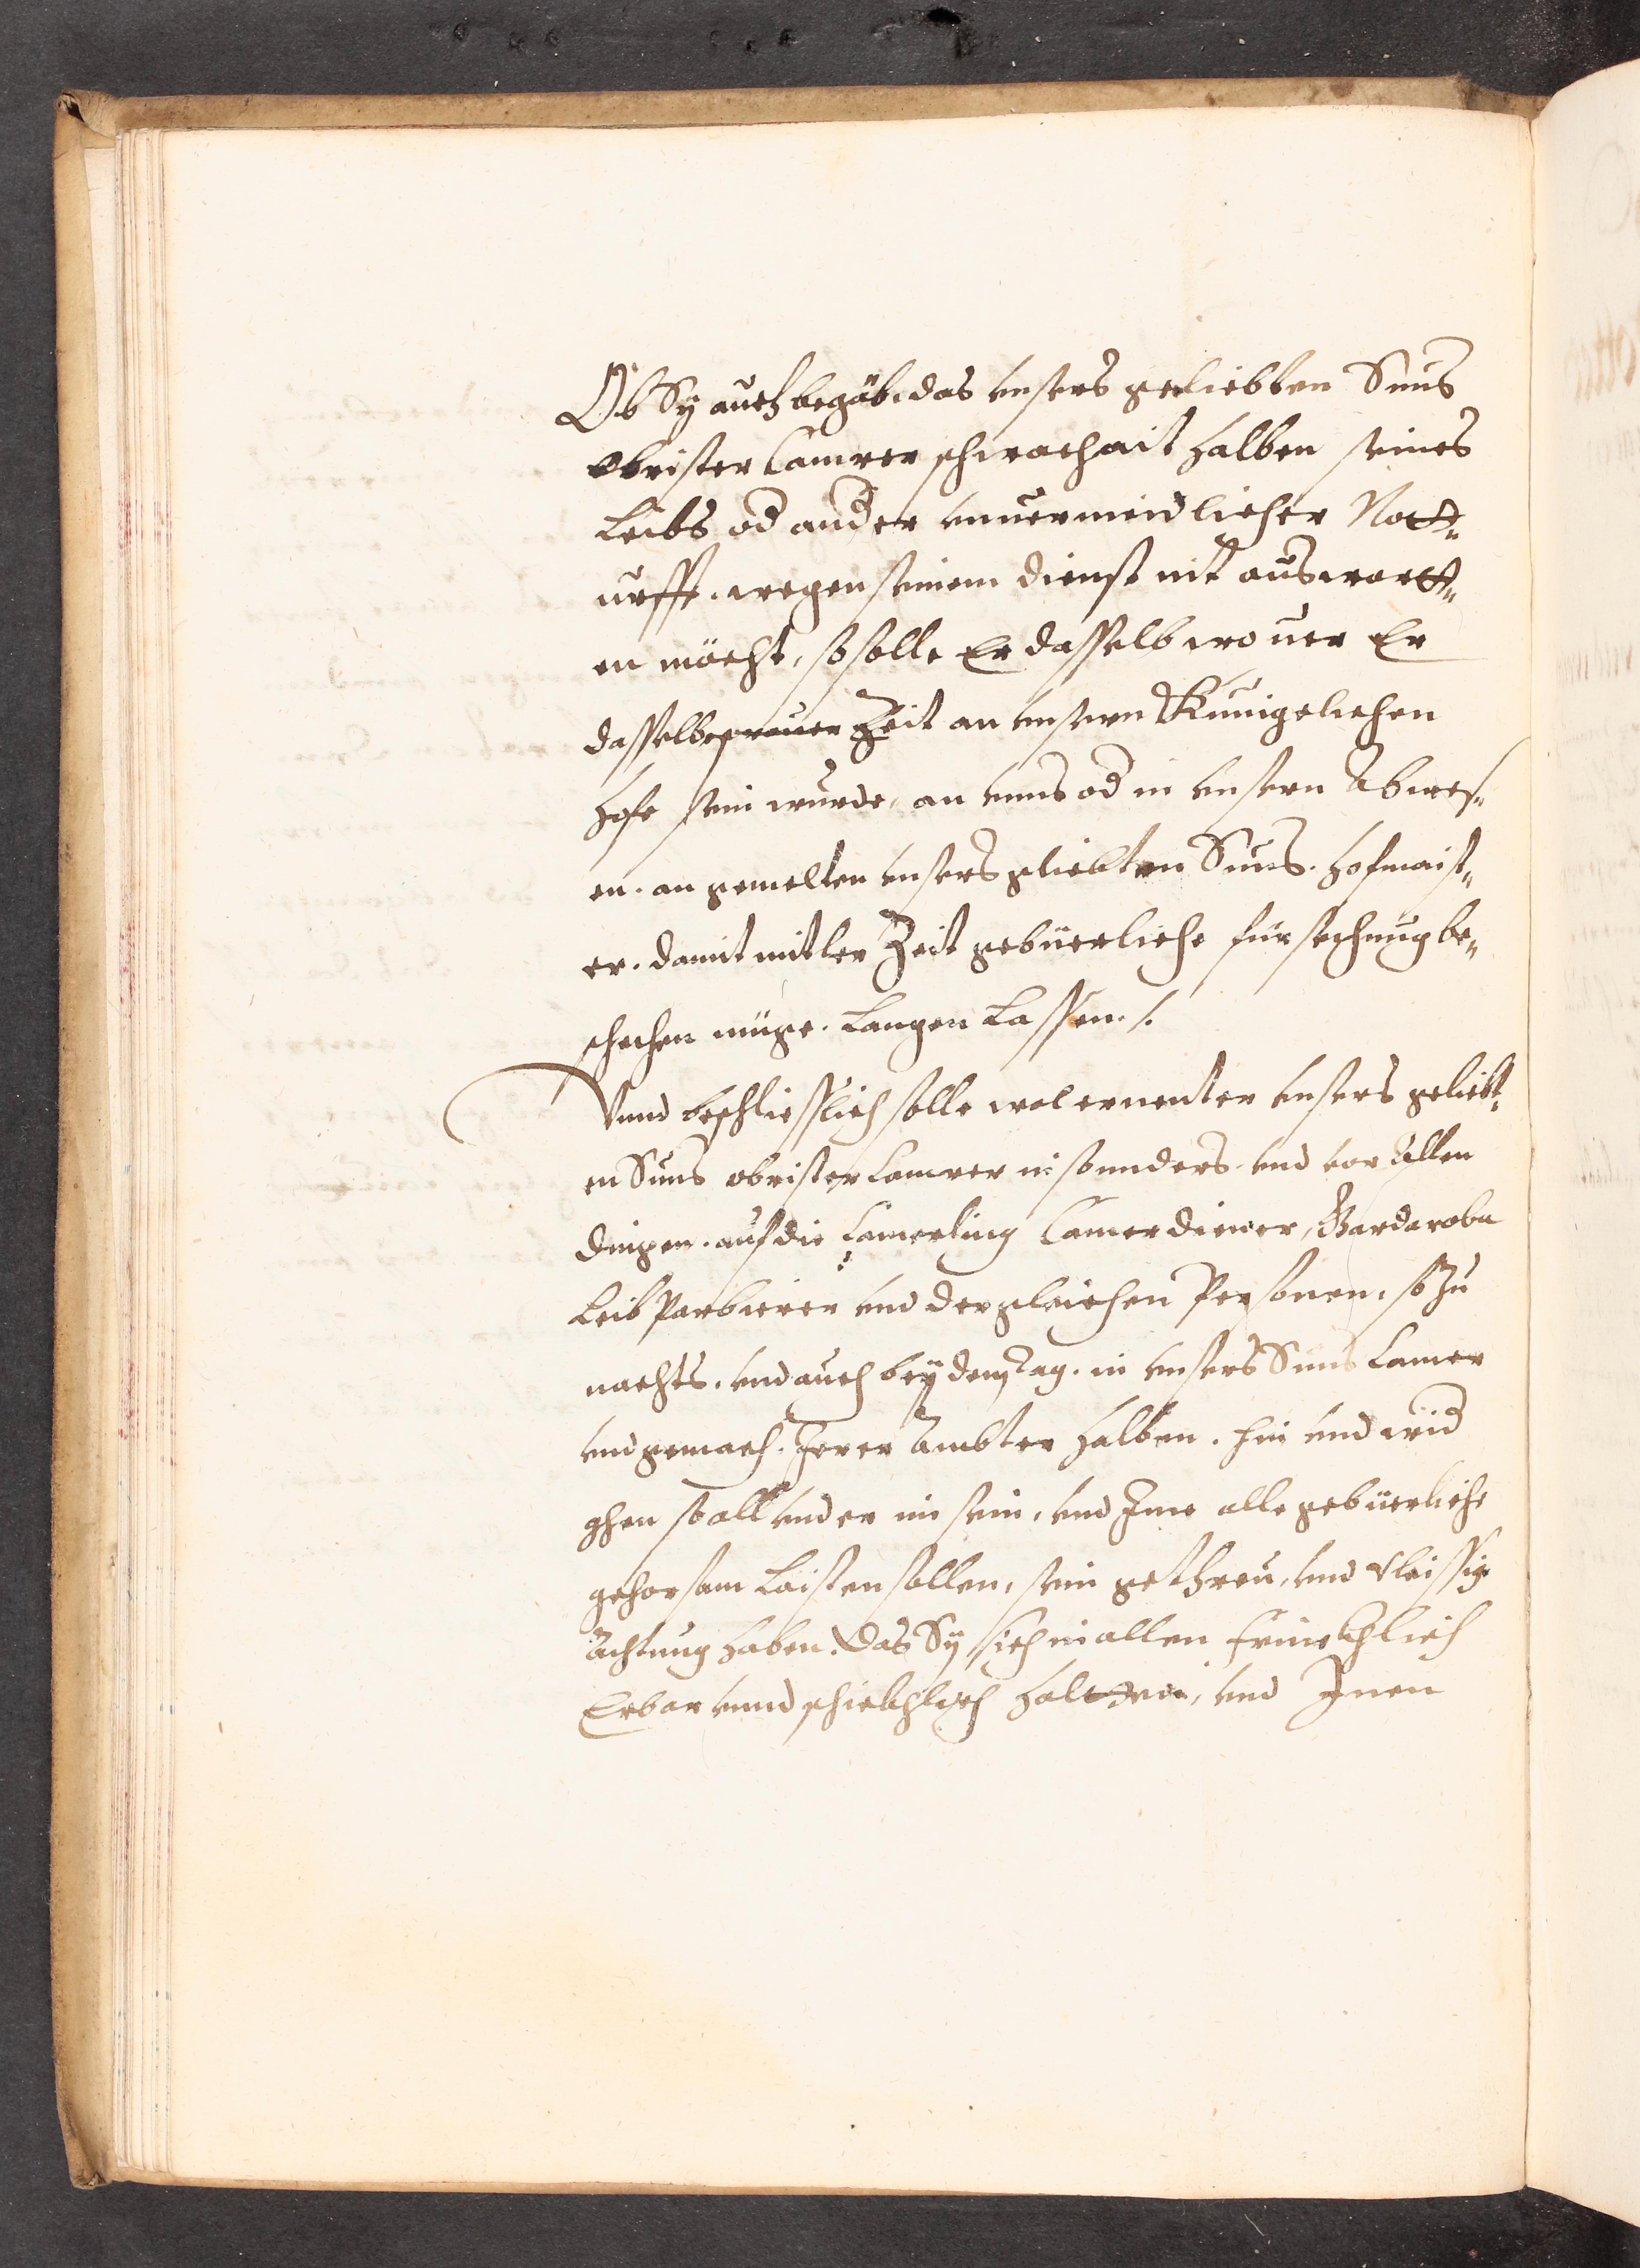 Ob Sy auch begäb. das vnsers geliebten Suns
Obrister Camrer schwachait halben seines
Leibs od ander vnuermeidlicher Nott„
urfft. wegen seinem dienst nit auswartt„
en möcht, so solle Er dasselb wo uer Er
dasselbe Zeit an vnserm Kunigclichen
Hofe sein wurde, an vnns od in vnserm Abwes„
en. an gemelten vnsers gliebten Suns. Hofmaist„
er. damit mitler Zeit gebüerliche fürsechung be„
schechen müge. Langen Lassen. /.
Vnnd beschliesslich solle wolernenter vnsers geliebt„
en Suns obrister Camrer in sonnders. vnd vor Allen
dingen. auf die Camerling Camerdiener, Gardaroba
Leib Parbierer vnd dergleichen Personen, so zu
nachts. vnd auch bey dem tag. in vnsers Suns Camer
vnd gemach. Jerer Ambter halben. hin vnd wid
ghen so all vnder im sein, vnd Jme alle gebüerliche
gehorsam Laisten sollen, sein gethreu, vnd vleissige
achtung haben. Das Sy sich in allen
Erbar vnnd schickhlich haltten, vnd Jnen